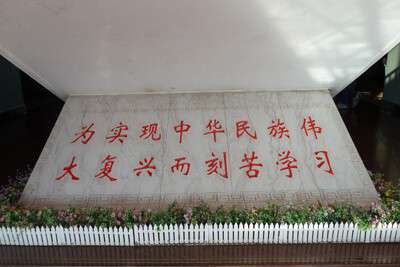 为实现中华民族伟
大复兴而刻苦学习